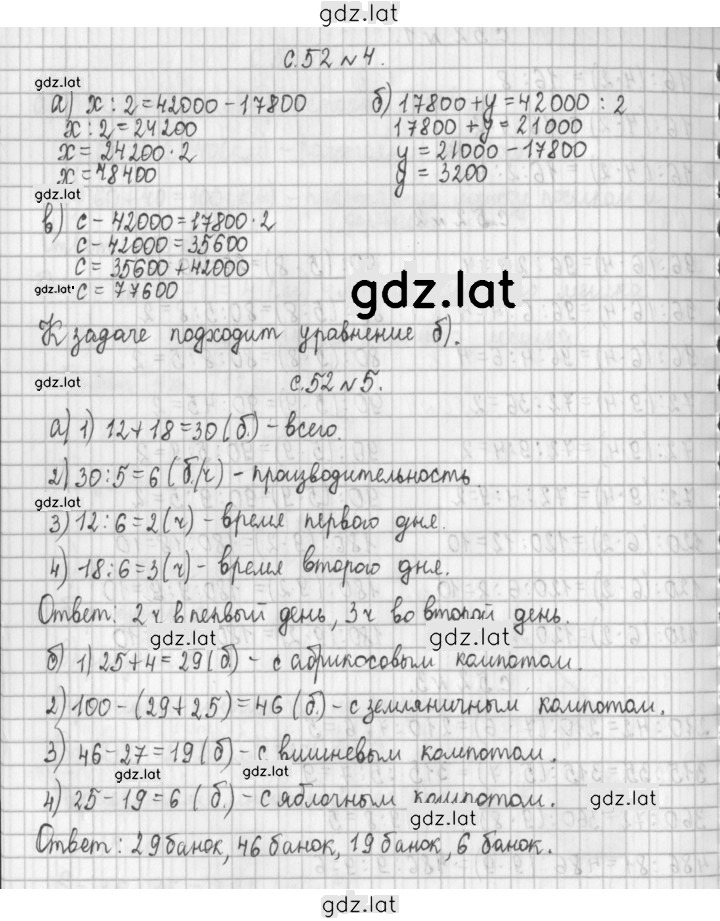 gdz.lat
с.52 №4.
gdz.lat
а) x : 2 = 42000 - 17800
x : 2 = 24200
x = 24200 · 2
x = 48400
б) 17800 + y = 42000 : 2
17800 + y = 21000
y = 21000 - 17800
y = 3200
gdz.lat
в) c - 42000 = 17800 · 2
c - 42000 = 35600
c = 35600 + 42000
gdz.lat
c = 77600
gdz.lat
К задаче подходит уравнение б).
gdz.lat
с.52 №5.
а) 1) 12 + 18 = 30 (б.) - всего.
2) 30 : 5 = 6 (б./ч) - производительность.
gdz.lat
3) 12 : 6 = 2 (ч) - время первого дня.
4) 18 : 6 = 3 (ч) - время второго дня.
Ответ: 2 ч в первый день, 3 ч во второй день.
gdz.lat gdz.lat
б) 1) 25 + 4 = 29 (б.) - с абрикосовым компотом.
2) 100 - (29 + 25) = 46 (б.) - с земляничным компотом.
3) 46 - 27 = 19 (б) - с вишневым компотом.
gdz.lat gdz.lat
4) 25 - 19 = 6 (б.) - с яблочным компотом.
gdz.lat
gdz.lat
Ответ: 29 банок, 46 банок, 19 банок, 6 банок.
gdz.lat